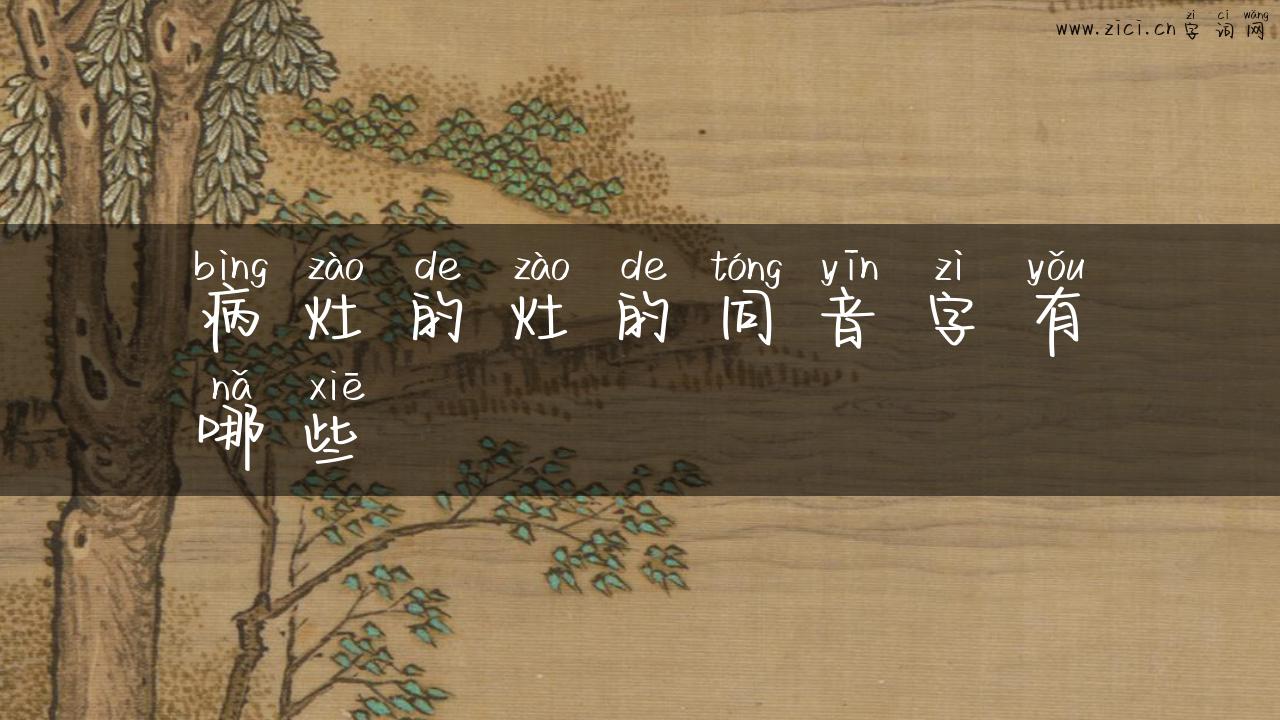 zì cí wǎng
www.zici.cn 字词网
bìng zào de zào de tóng yīn zì yǒu
病灶的灶的同音字有
nǎ xiē
哪些